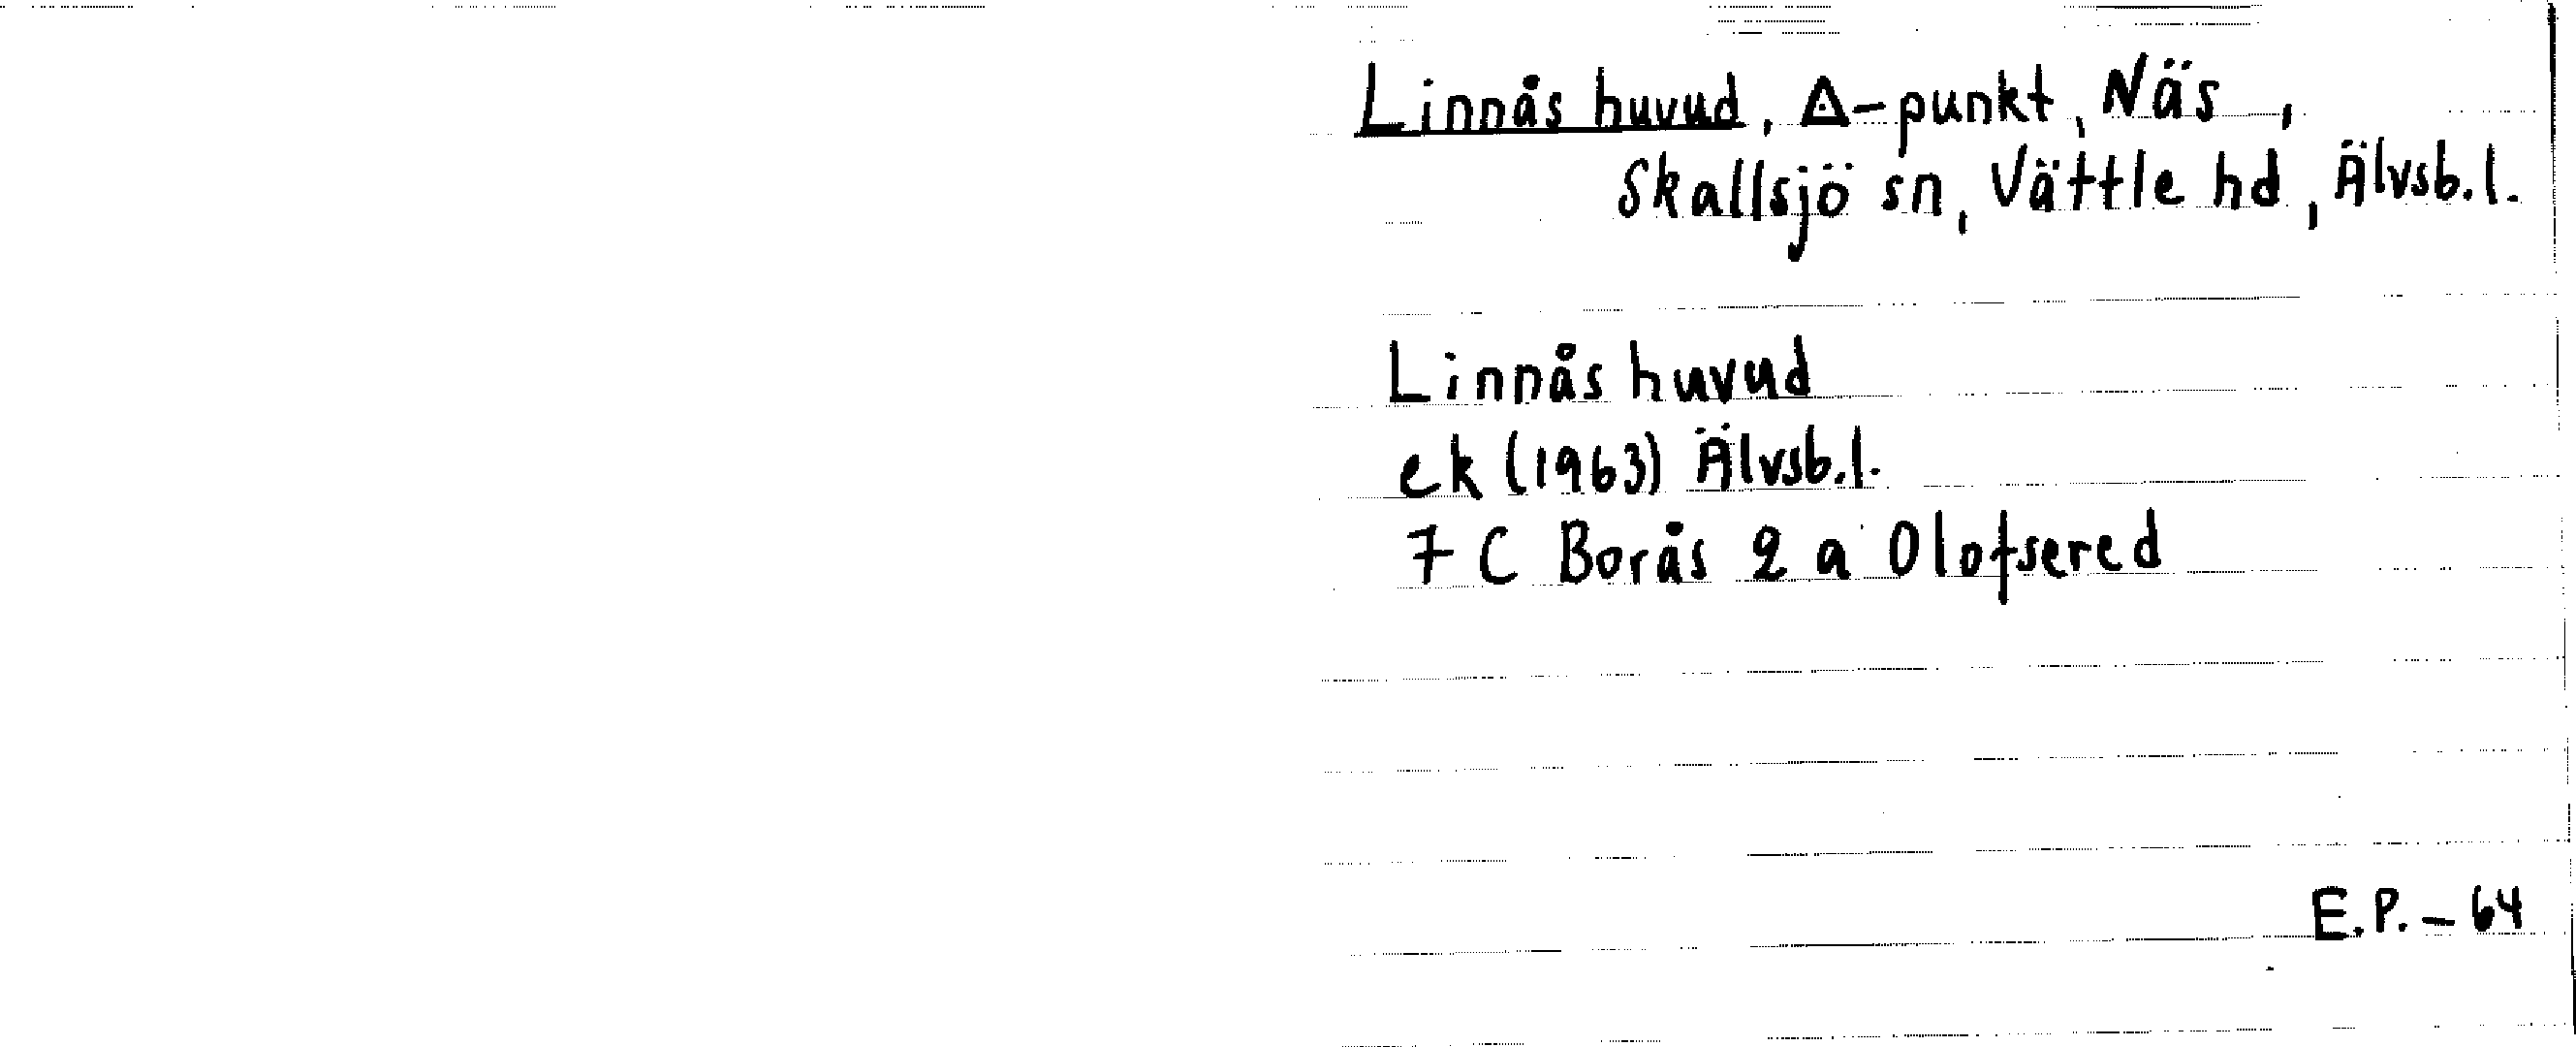 Linnås huvud, ∆-punkt, Näs,
Skallsjö sn, Vättle hd, Älvsb.l.
Linnås huvud
ek (1963) Älvsb.l.
7 C Borås 2 a Olofsered
E.P. - 64